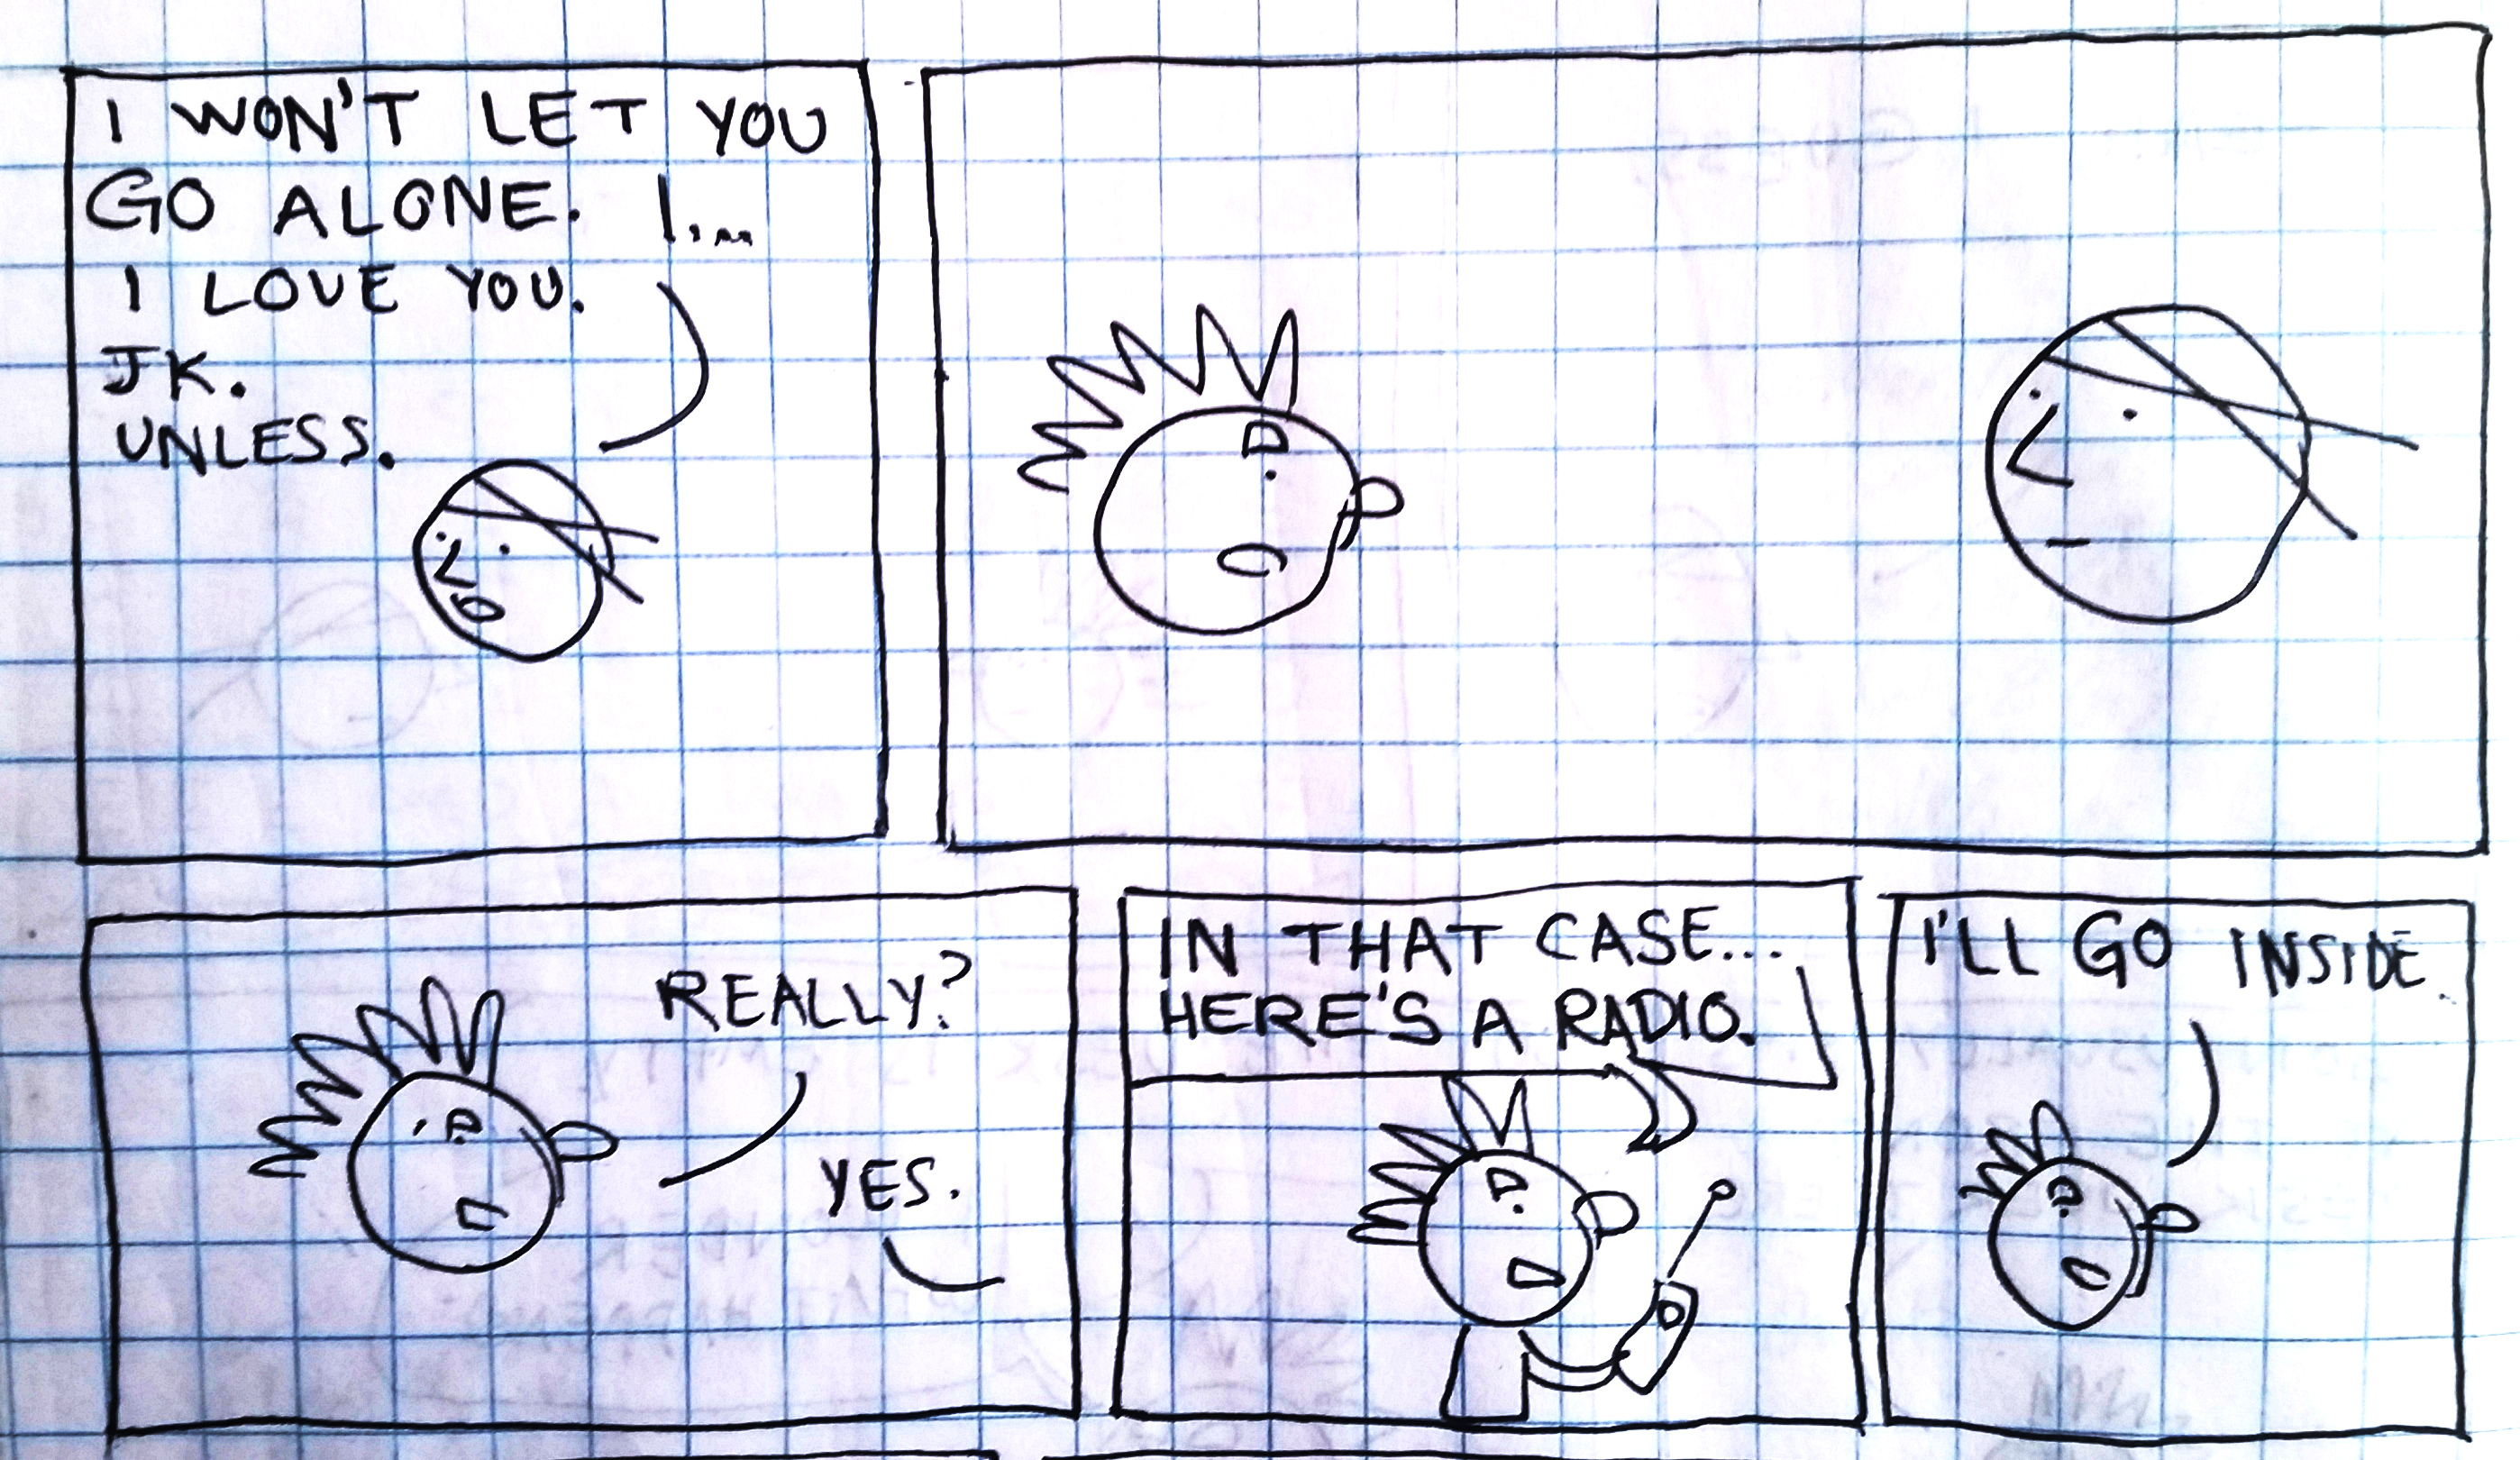 I WON'T LET YOU
GO ALONE. I...
I LOVE YOU.
JK.
UNLESS.
REALLY?
YES.
IN THAT CASE...
HERE'S A RADIO.
I'LL GO INSIDE.